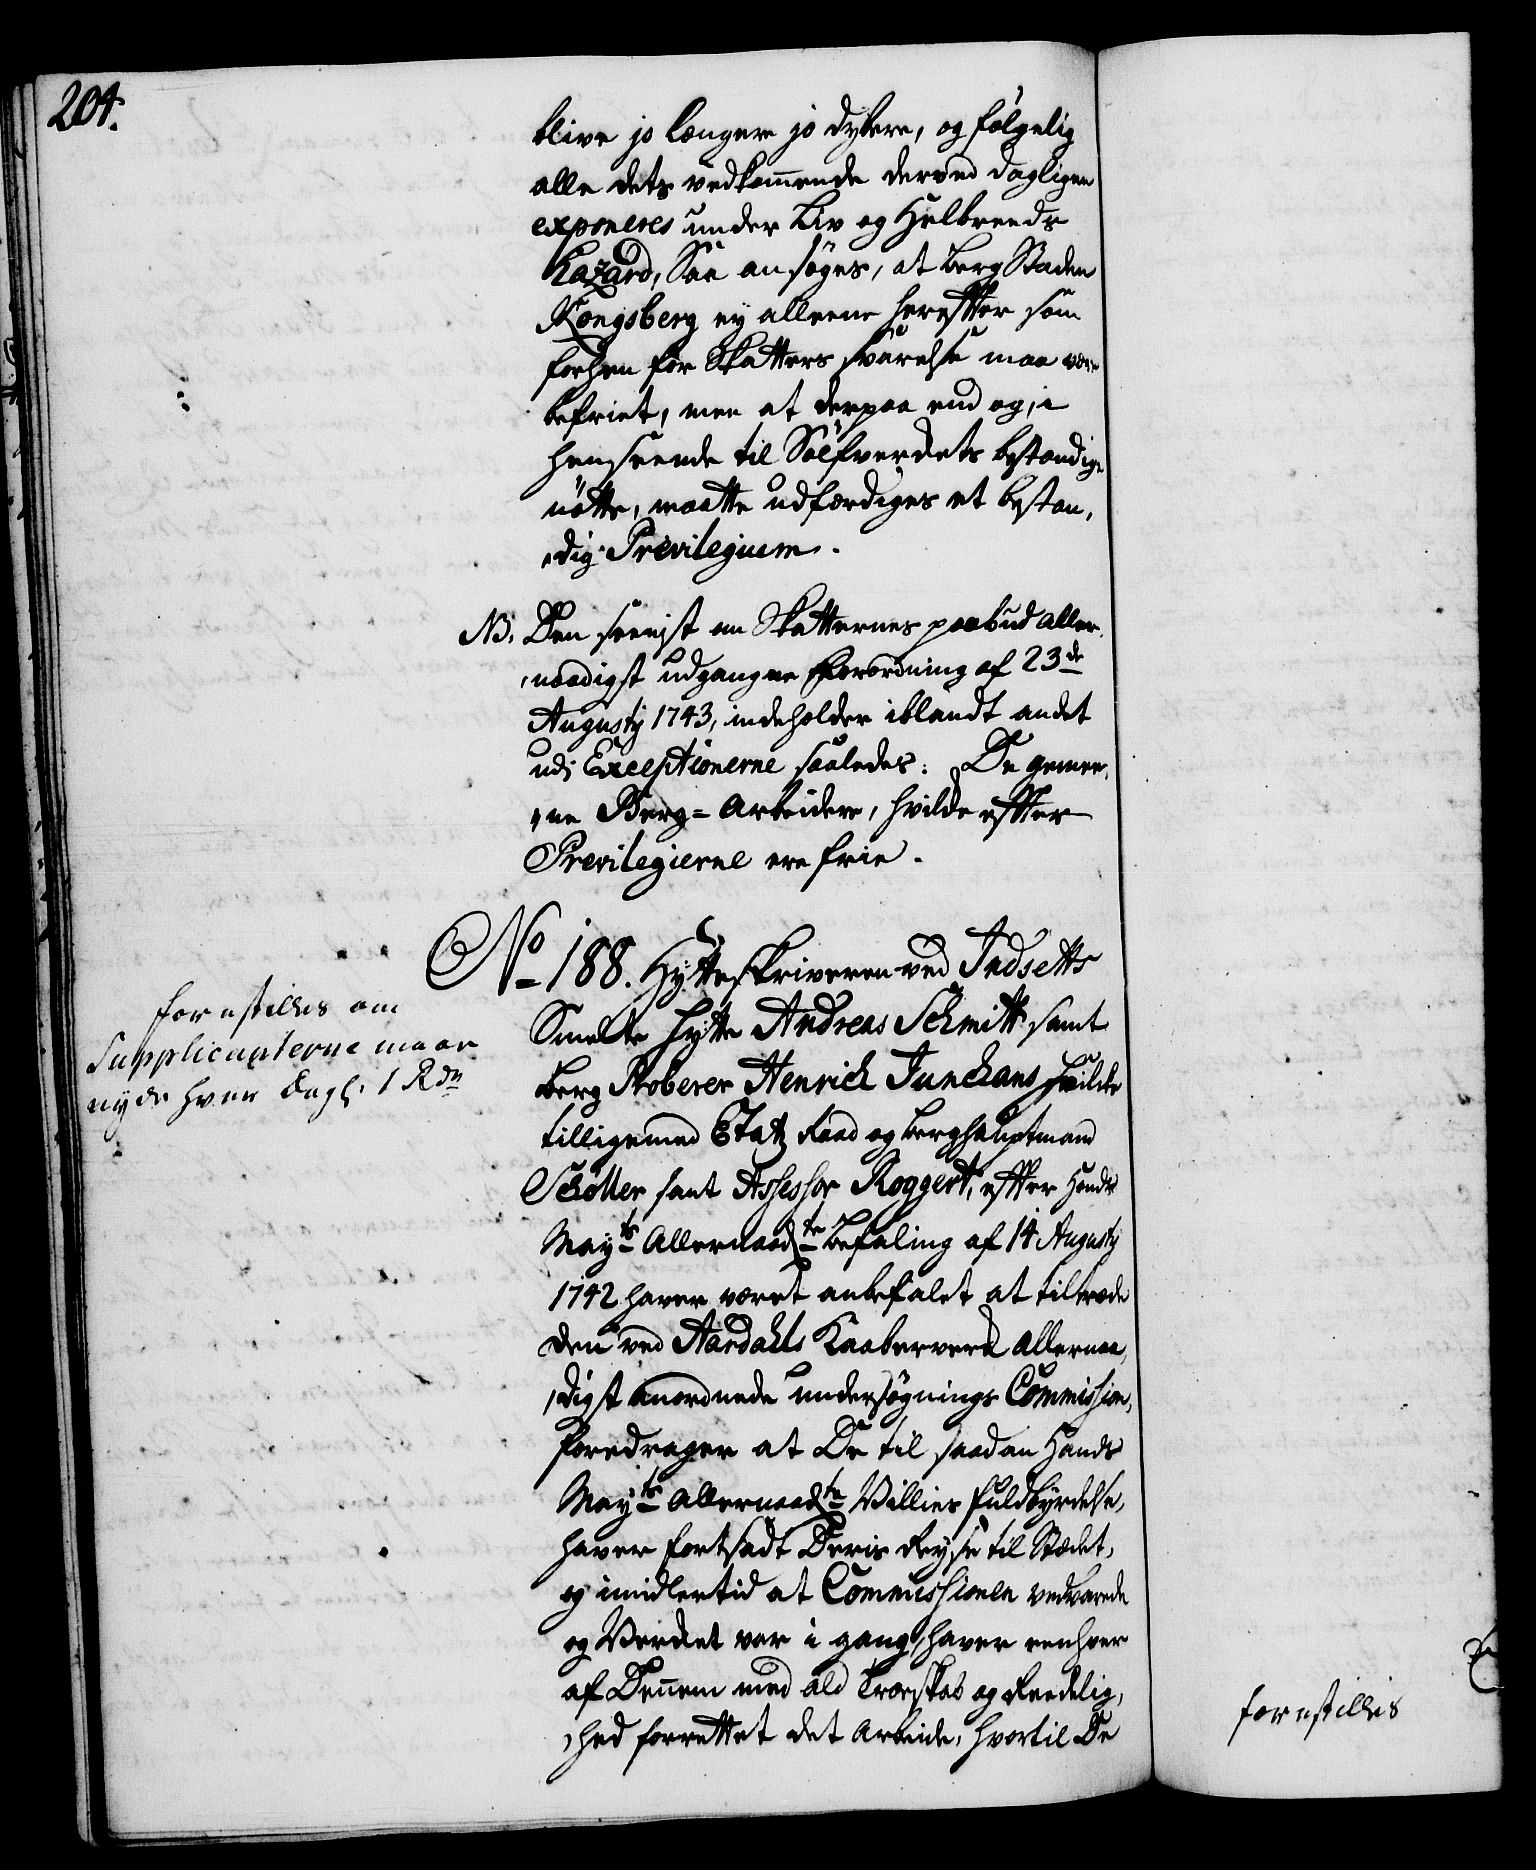 204.
blive jo længere jo dybere, og følgelig
alle dets vedkom̄ende derved dagligen
exponeres under Liv og Helbreeds
Hazard, Saa ansøges, at Berg Staden
Kongsberg ey alleene herefter som
forhen for Skatters svarelse maa være
befriet, men at derpaa end og, i
henseende til Sølfverkets bestandige
nøtte, maatte udfærdiges et bestan,
,dig Previlegium.
NB. Den seenist om Skatternes paabud aller,
,naadigst udgangne Forordning af 23de
Augusty 1743, indeholder iblandt andet
udi Exceptionerne saaledes: De gemee,
,ne Berg=Arbeidere, hvilcke efter
Previlegierne ere frie.
No 188. Hytteskriveren ved Indsetts
Smelte Hytte Andreas Schmitt samt
Berg Proberer Henrich Junchans hvilcke
tilligemed Etatz Raad og Berghauptmand
Schøller samt Assessor Roggert, efter Hands
Mayts Allernaadte Befaling af 14 Augusty
1742 haver været anbefalet at tiltræde
den ved Aardahls Kaaberverck allernaa,
,digst anordnede undersøgnings Commission,
foredrager at De til saadan Hands
Mayts allernaadte Villies fuldbyrdelse,
haver fortsadt Deris Reyse til Stædet,
og imidlertid at Commissionen vedvarede
og Vercket var i gang, haver eenhver
af Dennem med ald Troeskab og Reedelig,
,hed forrettet det Arbeide, hvortil De
forestilles om
Supplicanterne maae
nyde hver dagl. 1 Rdr
forestilles